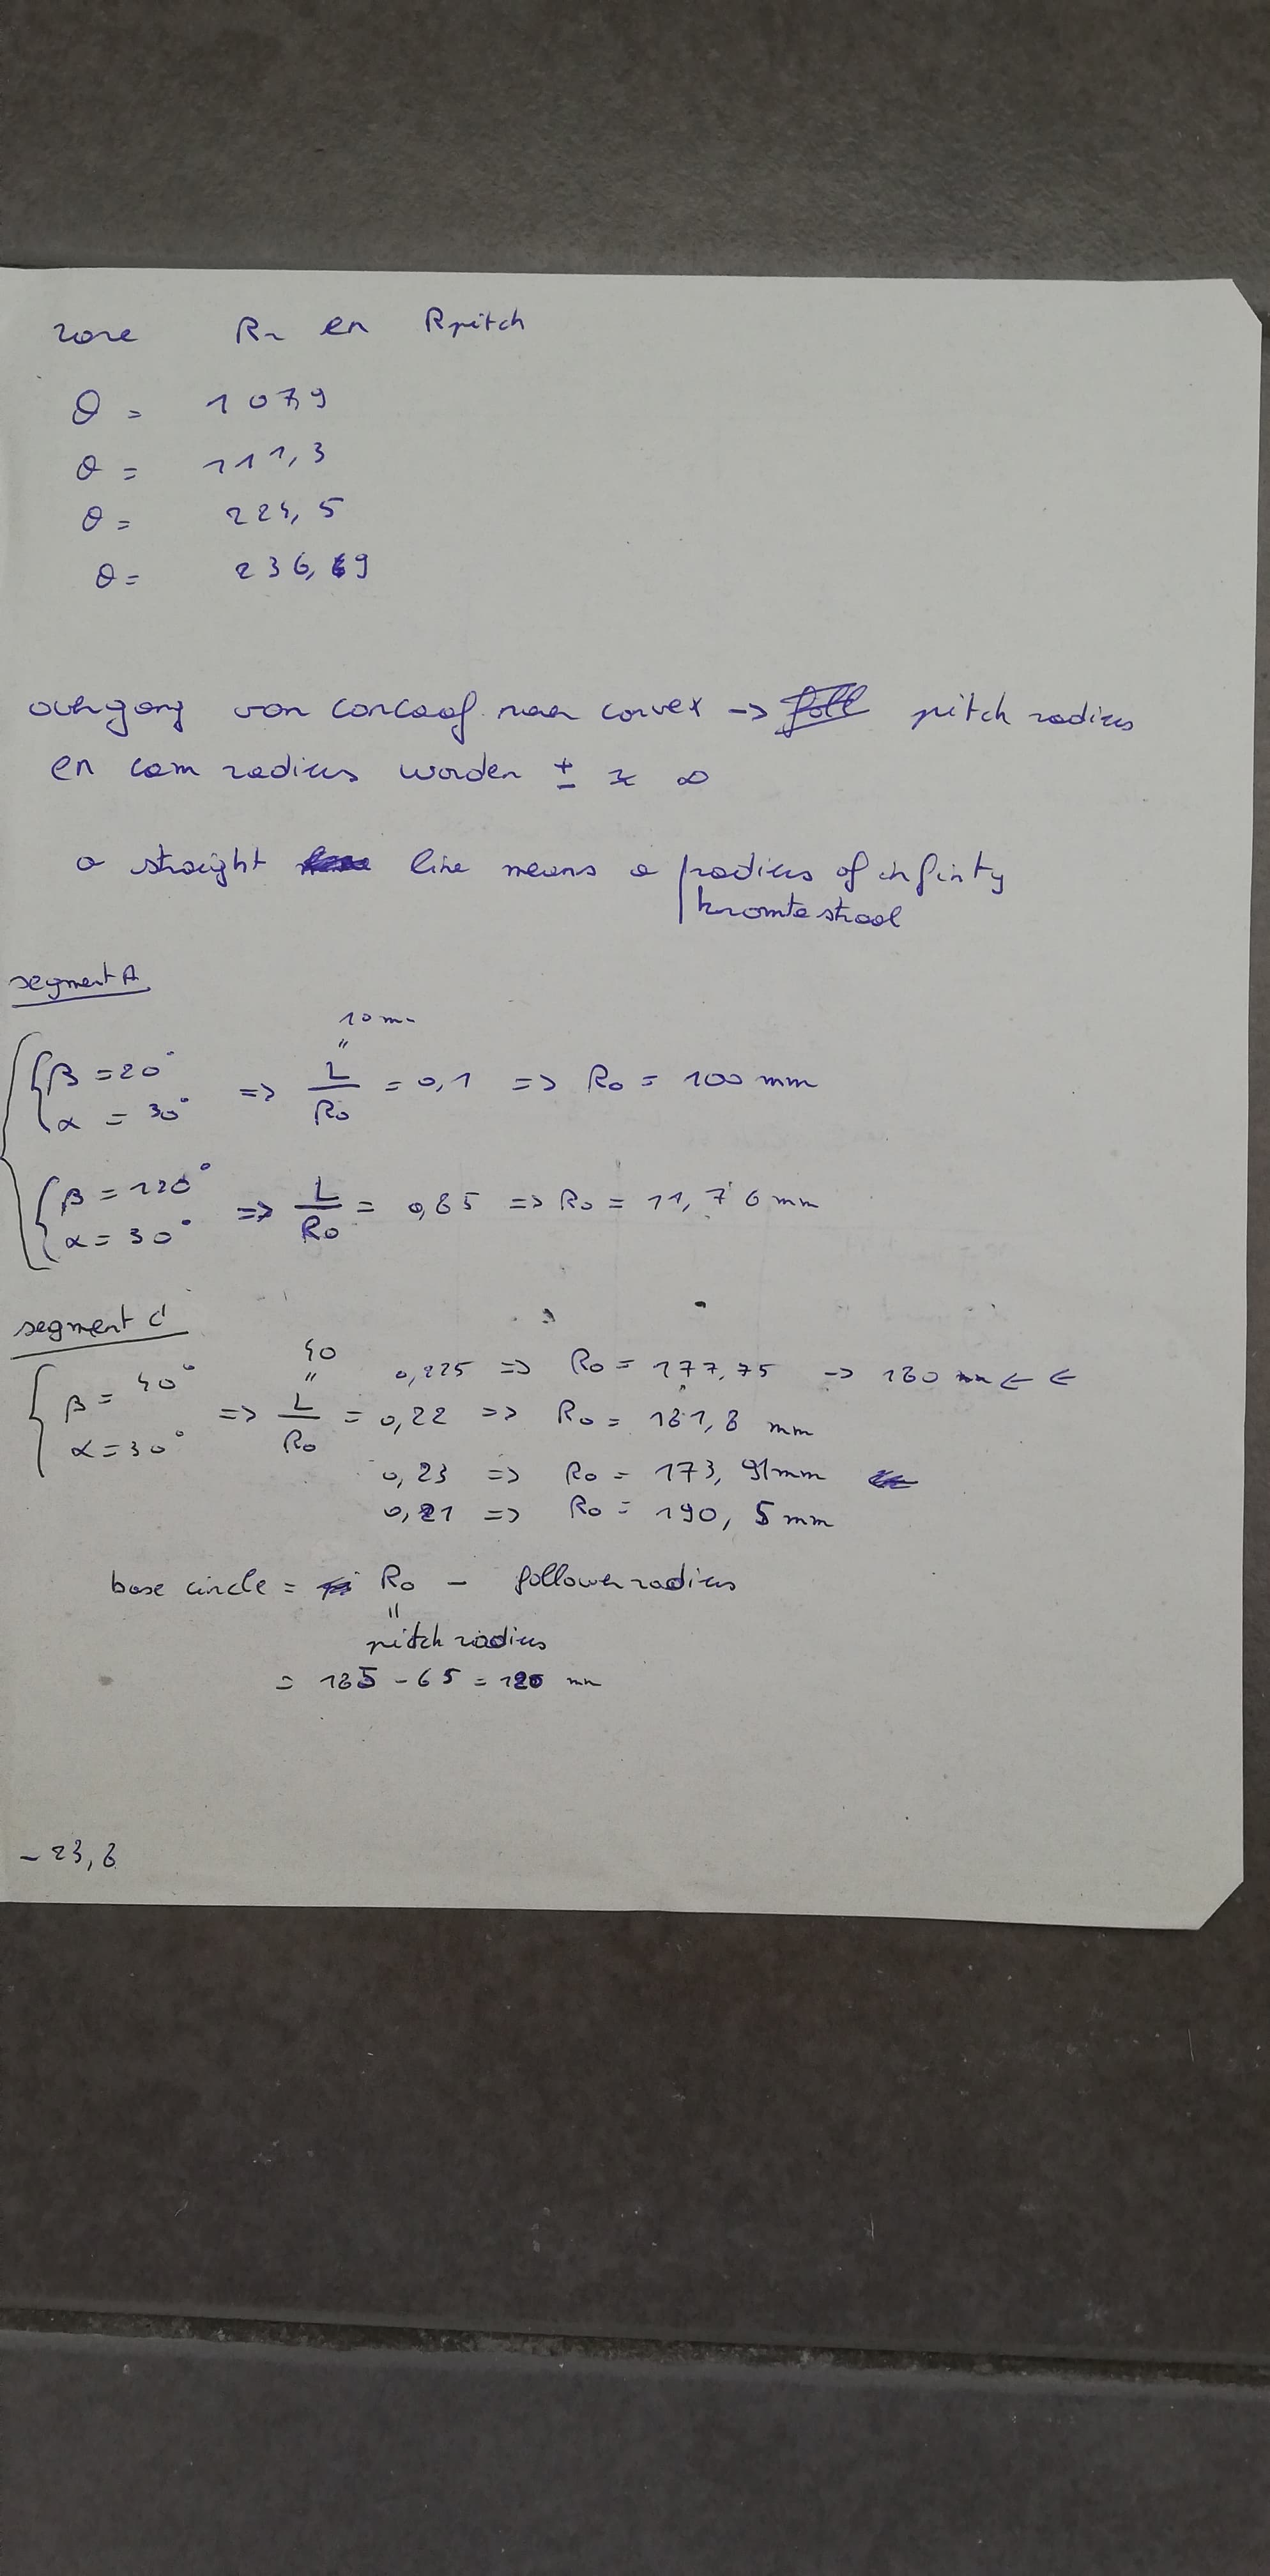 zone R~ en Rpitch
θ = 107,9
θ = 111,3
θ = 224,5
θ = 236,69
overgang van concaaf naar convex -> pitch radius
en cam radius worden ± ≈ ∞
a straight line means a radius of infinity
kromtestraal
segment A
10 mm
β = 20° => L/R0 = 0,1 => R0 = 100 mm
α = 30°
β = 120° => L/R0 = 0,85 => R0 = 11,76 mm
α = 30°
segment C
40
0,225 => R0 = 177,75 -> 180 mm <- <-
β = 40° => L/R0 = 0,22 => R0 = 181,8 mm
α = 30°
0,23 => R0 = 173,91 mm
0,21 => R0 = 190,5 mm
base circle = R0 - follower radius
"
pitch radius
= 185 - 65 = 120 mm
- 23,8